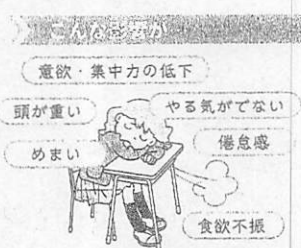 こんな影響が
意欲・集中力の低下
頭が重い
やる気がでない
めまい
倦怠感
食欲不振